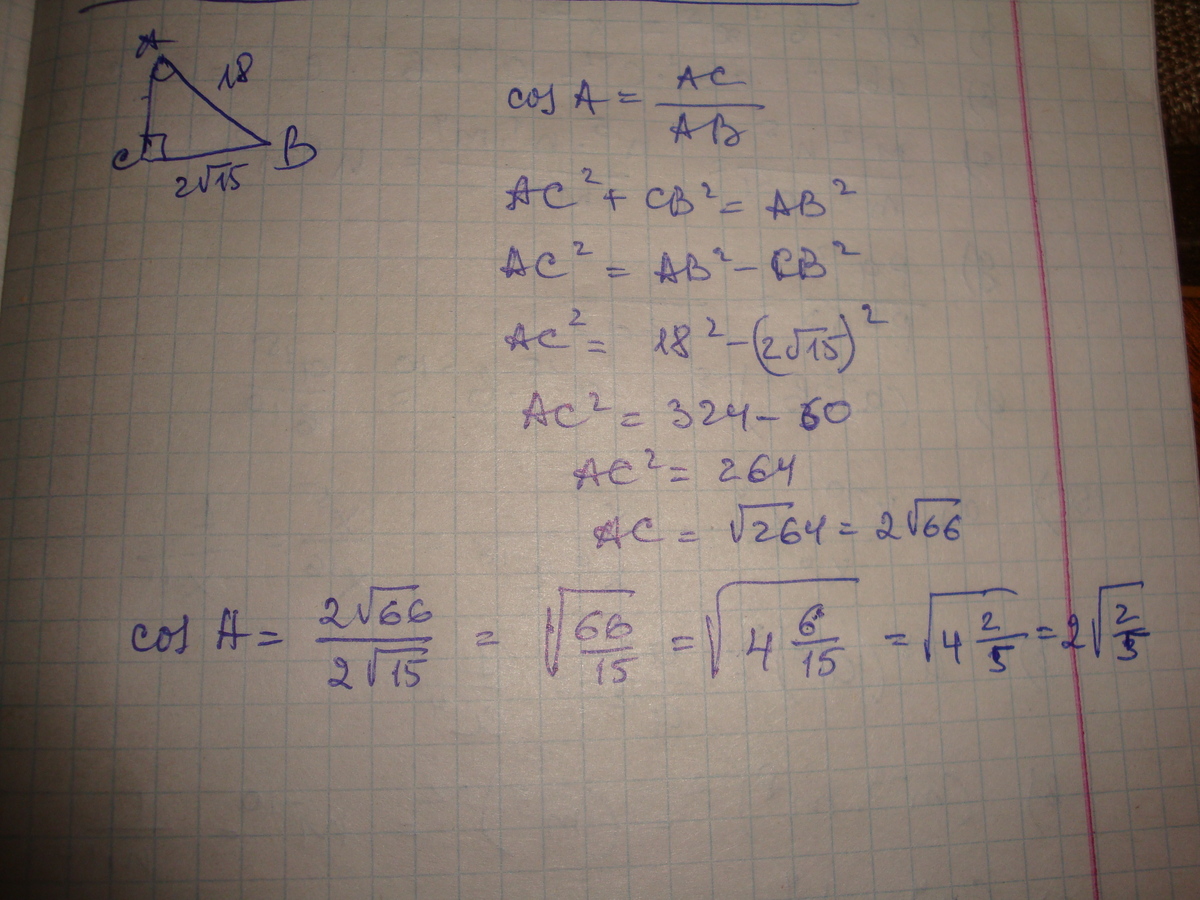 A
18
C
B
2√15
cos A = AC/AB
AC² + CB² = AB²
AC² = AB² - CB²
AC² = 18² - (2√15)²
AC² = 324 - 60
AC² = 264
AC = √264 = 2√66
cos A = 2√66/2√15 = √66/15 = √4 6/15 = √4 2/5 = 2√2/5